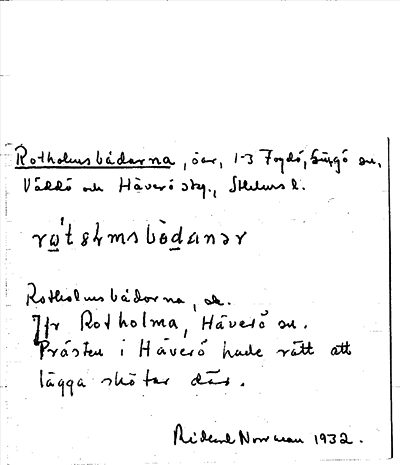 Rotholmsbådarna, öar, 1-3 Fogdö, Singö sn,
Väddö och Häverö skg., Sthlms l.
Rotholmsbådorna, ds.
Jfr Rotholma, Häverö sn.
Prästen i Häverö hade rätt att
lägga skötar där.
Rickard Norrman 1932.